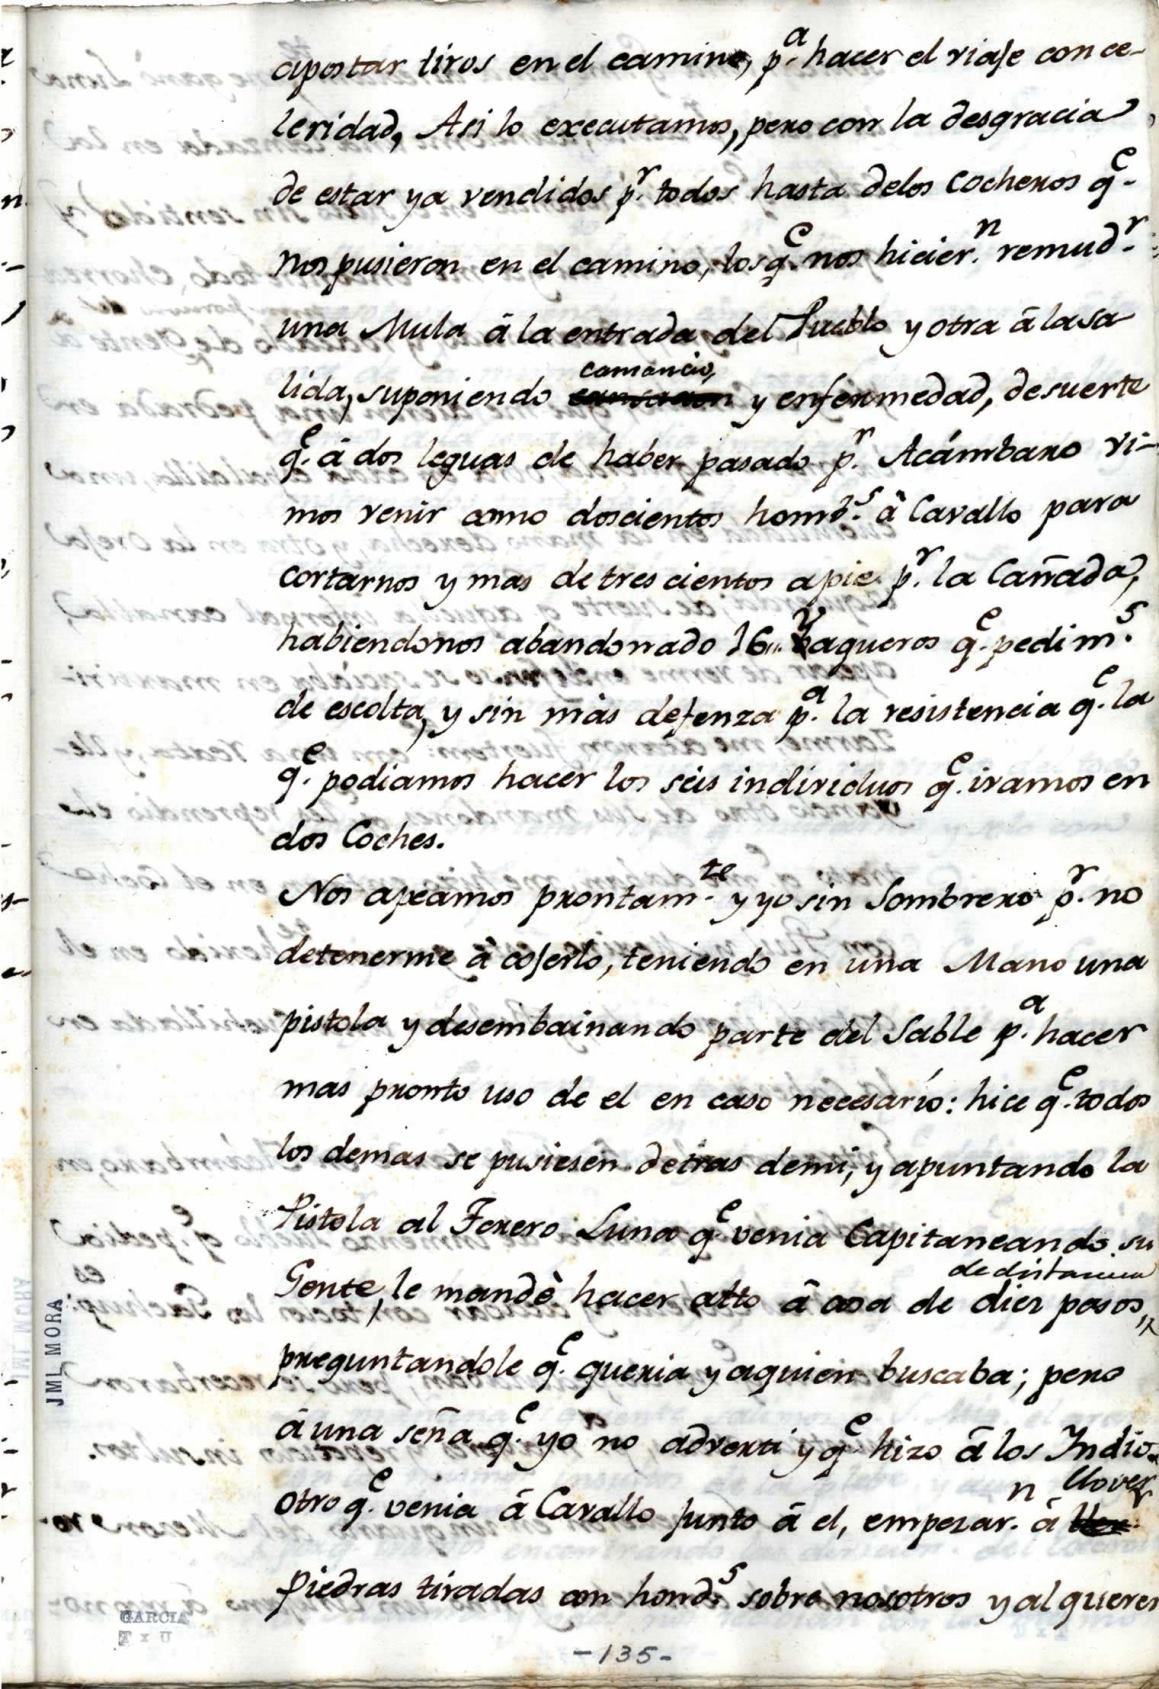 apostar tiros en el camino, p.ª hacer el viaje con ce-
leridad, Asi lo executamos, pero con la desgracia
de estar ya vendidos p.r todos hasta delos Cocheros q.e
nos pusieron en el camino, los q.e nos hicier.n remud.r
una Mula â la entrada del Pueblo y otra â lasa
lida, suponiendo cansancio, y enfermedad, desuerte
q.e â dos leguas de haber pasado p.r Acámbaro vi-
mos venir como doscientos homb.s â Cavallo para
cortarnos y mas de trescientos apie p.r la Cañada,
habiendonos abandonado 16,, Vaqueros q.e pedim.s
de escolta, y sin màs defenza p.a la resistencia q.e la
q.e podiamos hacer los seis individuos q.e ivamos en
dos Coches.
Nos apeamos prontam.te y yo sin Sombrero p.r no
detenerme â cojerlo, teniendo en una Mano una
pistola y desembainando parte del Sable p.a hacer
mas pronto uso de el en caso necesarío: hice q.e todos
los demas se pusiesen detras demi, y apuntando la
Pistola al Torero Luna q.e venia Capitaneando su
Gente, le mandè hacer alto â cosa de diez pasos de distancia,
preguntandole q.e queria y aquien buscaba; pero
â una seña q.e yo no adverti y q.e hizo â los Indios
otro q.e venia â Cavallo junto â el, empezar.n â llover
piedras tiradas con hond.s sobre nosotros y al querer
-135-
JML MORA
GARCIA